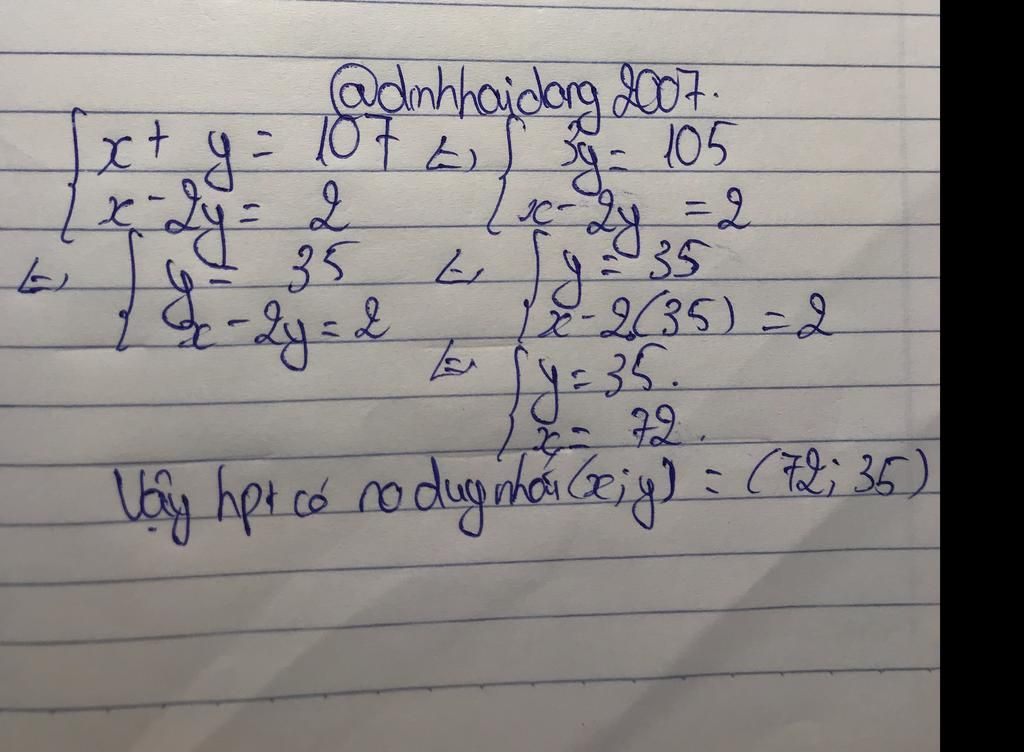 @dinhhaidang2007.
{ x + y = 107 <=> { 3y = 105
{ x - 2y = 2 { x - 2y = 2
<=> { y = 35 <=> { y = 35
{ x - 2y = 2 { x - 2(35) = 2
<=> { y = 35.
{ x = 72.
Vậy hpt có no duy nhất (x; y) = (72; 35)